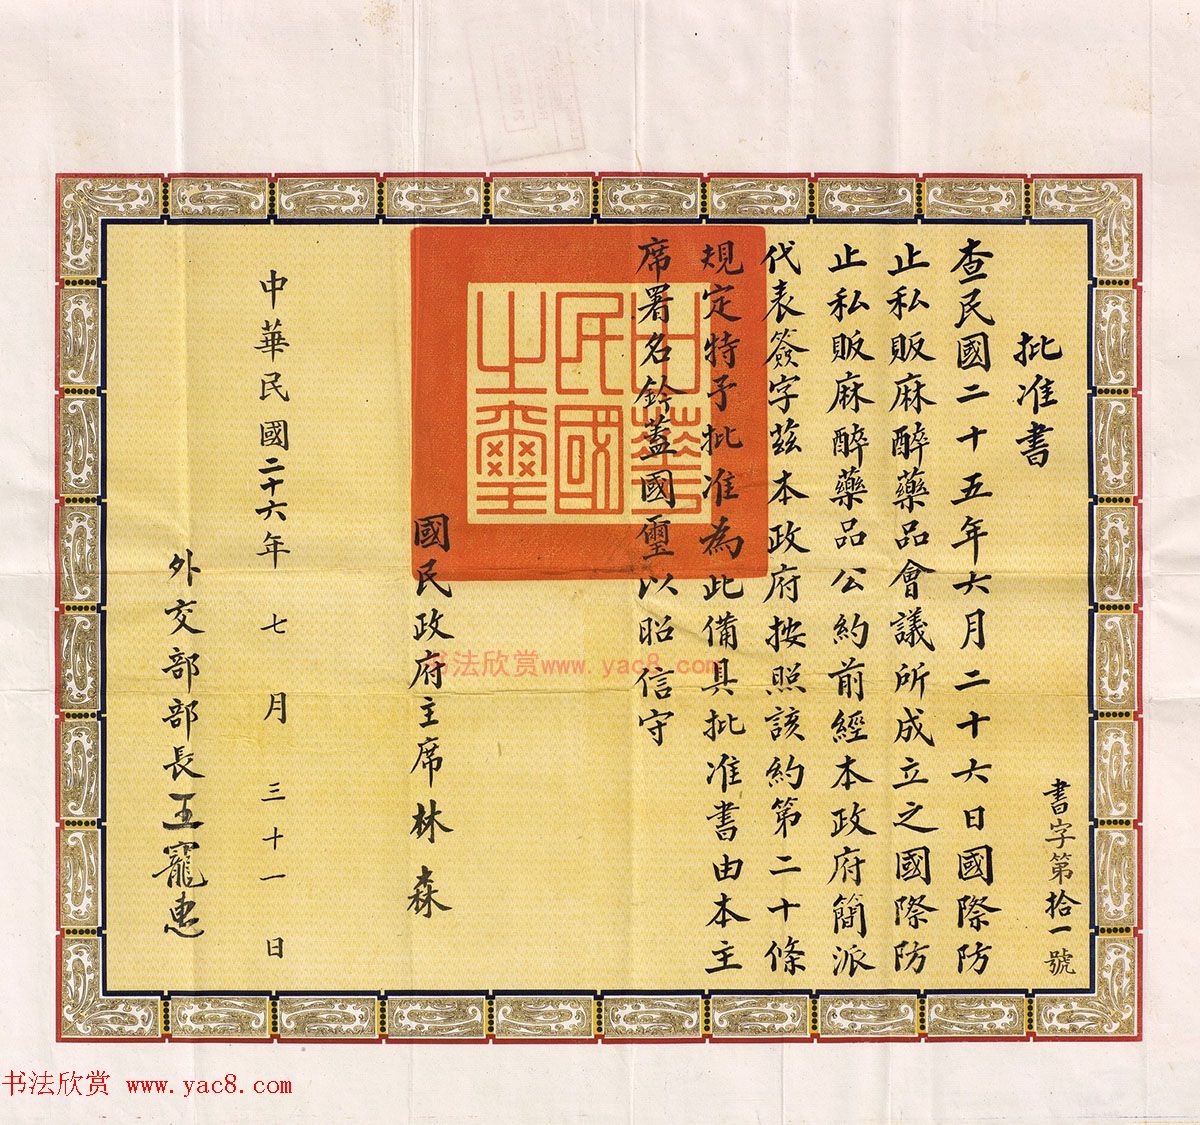 書字第拾一號
批准書
查民國二十五年六月二十六日國際防
止私販麻醉藥品會議所成立之國際防
止私販麻醉藥品公約前經本政府簡派
代表簽字茲本政府按照該約第二十條
規定特予批准為此備具批准書由本主
席署名鈐蓋國璽以昭信守
中華民國之璽
國民政府主席林森
中華民國二十六年七月三十一日
外交部部長王寵惠
书法欣赏www.yac8.com
书法欣赏 www.yac8.com